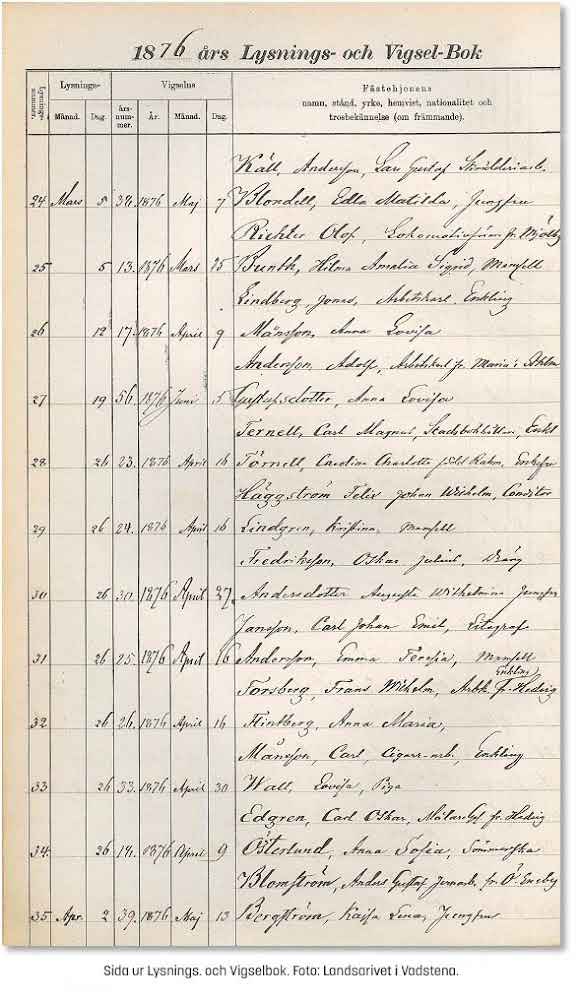 1876 års Lysnings- och Vigsel-Bok
Lysnings-
Vigselns
Fästehjonens
namn, stånd, yrke, hemvist, nationalitet och
trosbekännelse (om främmande).
Lysnings-
nummer.
Månad. Dag. års-
num-
mer. År. Månad. Dag.
Käll, Andersson, Lars Gustaf
24 Mars 5 34. 1876 Maj 7 Blondell, Edla Matilda, Jungfru
Richter Olof, fr. Mjölby
25 5 13. 1876 Mars 25 Bunth, Hilma Amalia Sigrid, Mamsell
Lindberg, Jonas, Arbetskarl. Enkling
26 12 17. 1876 April 9 Månsson, Anna Lovisa
Andersson, Adolf, Arbetskarl fr. Maria i Sthlm
27 19 56. 1876 Juni 5 Gustafsdotter, Anna Lovisa
Ternell, Carl Magnus, Enkl
28 26 23. 1876 April 16 Törnell, Carolina Charlotte född Rahm, Enkefru
Häggström Felix Johan Wilhelm, Conditor
29 26 24. 1876 April 16 Lindgren, Kristina, Mamsell
Fredriksson, Oskar Julius, Dräng
30 26 30. 1876 April 27. Andersdotter Augusta Wilhelmina Jungfru
Jansson, Carl Johan Emil,
31 26 25. 1876 April 16 Andersson, Emma Teresia, Mamsell
Enkling
Forsberg, Frans Wilhelm, Arbk. fr. Hedvig
32 26 26. 1876 April 16 Flintberg, Anna Maria,
Månsson, Carl, Cigarr-arb., Enkling
33 26 33. 1876 April 30 Wall, Lovisa, Piga
Edgren, Carl Oskar, fr. Hedvig
34. 26 14. 1876 April 9 Österlund, Anna Sofia, Sömmerska
Blomström, Anders Gustaf Jernarb. fr. Ö. Eneby
35 Apr. 2 39. 1876 Maj 13 Bergström, Kajsa Lena, Jungfru
Sida ur Lysnings. och Vigselbok. Foto: Landsarivet i Vadstena.